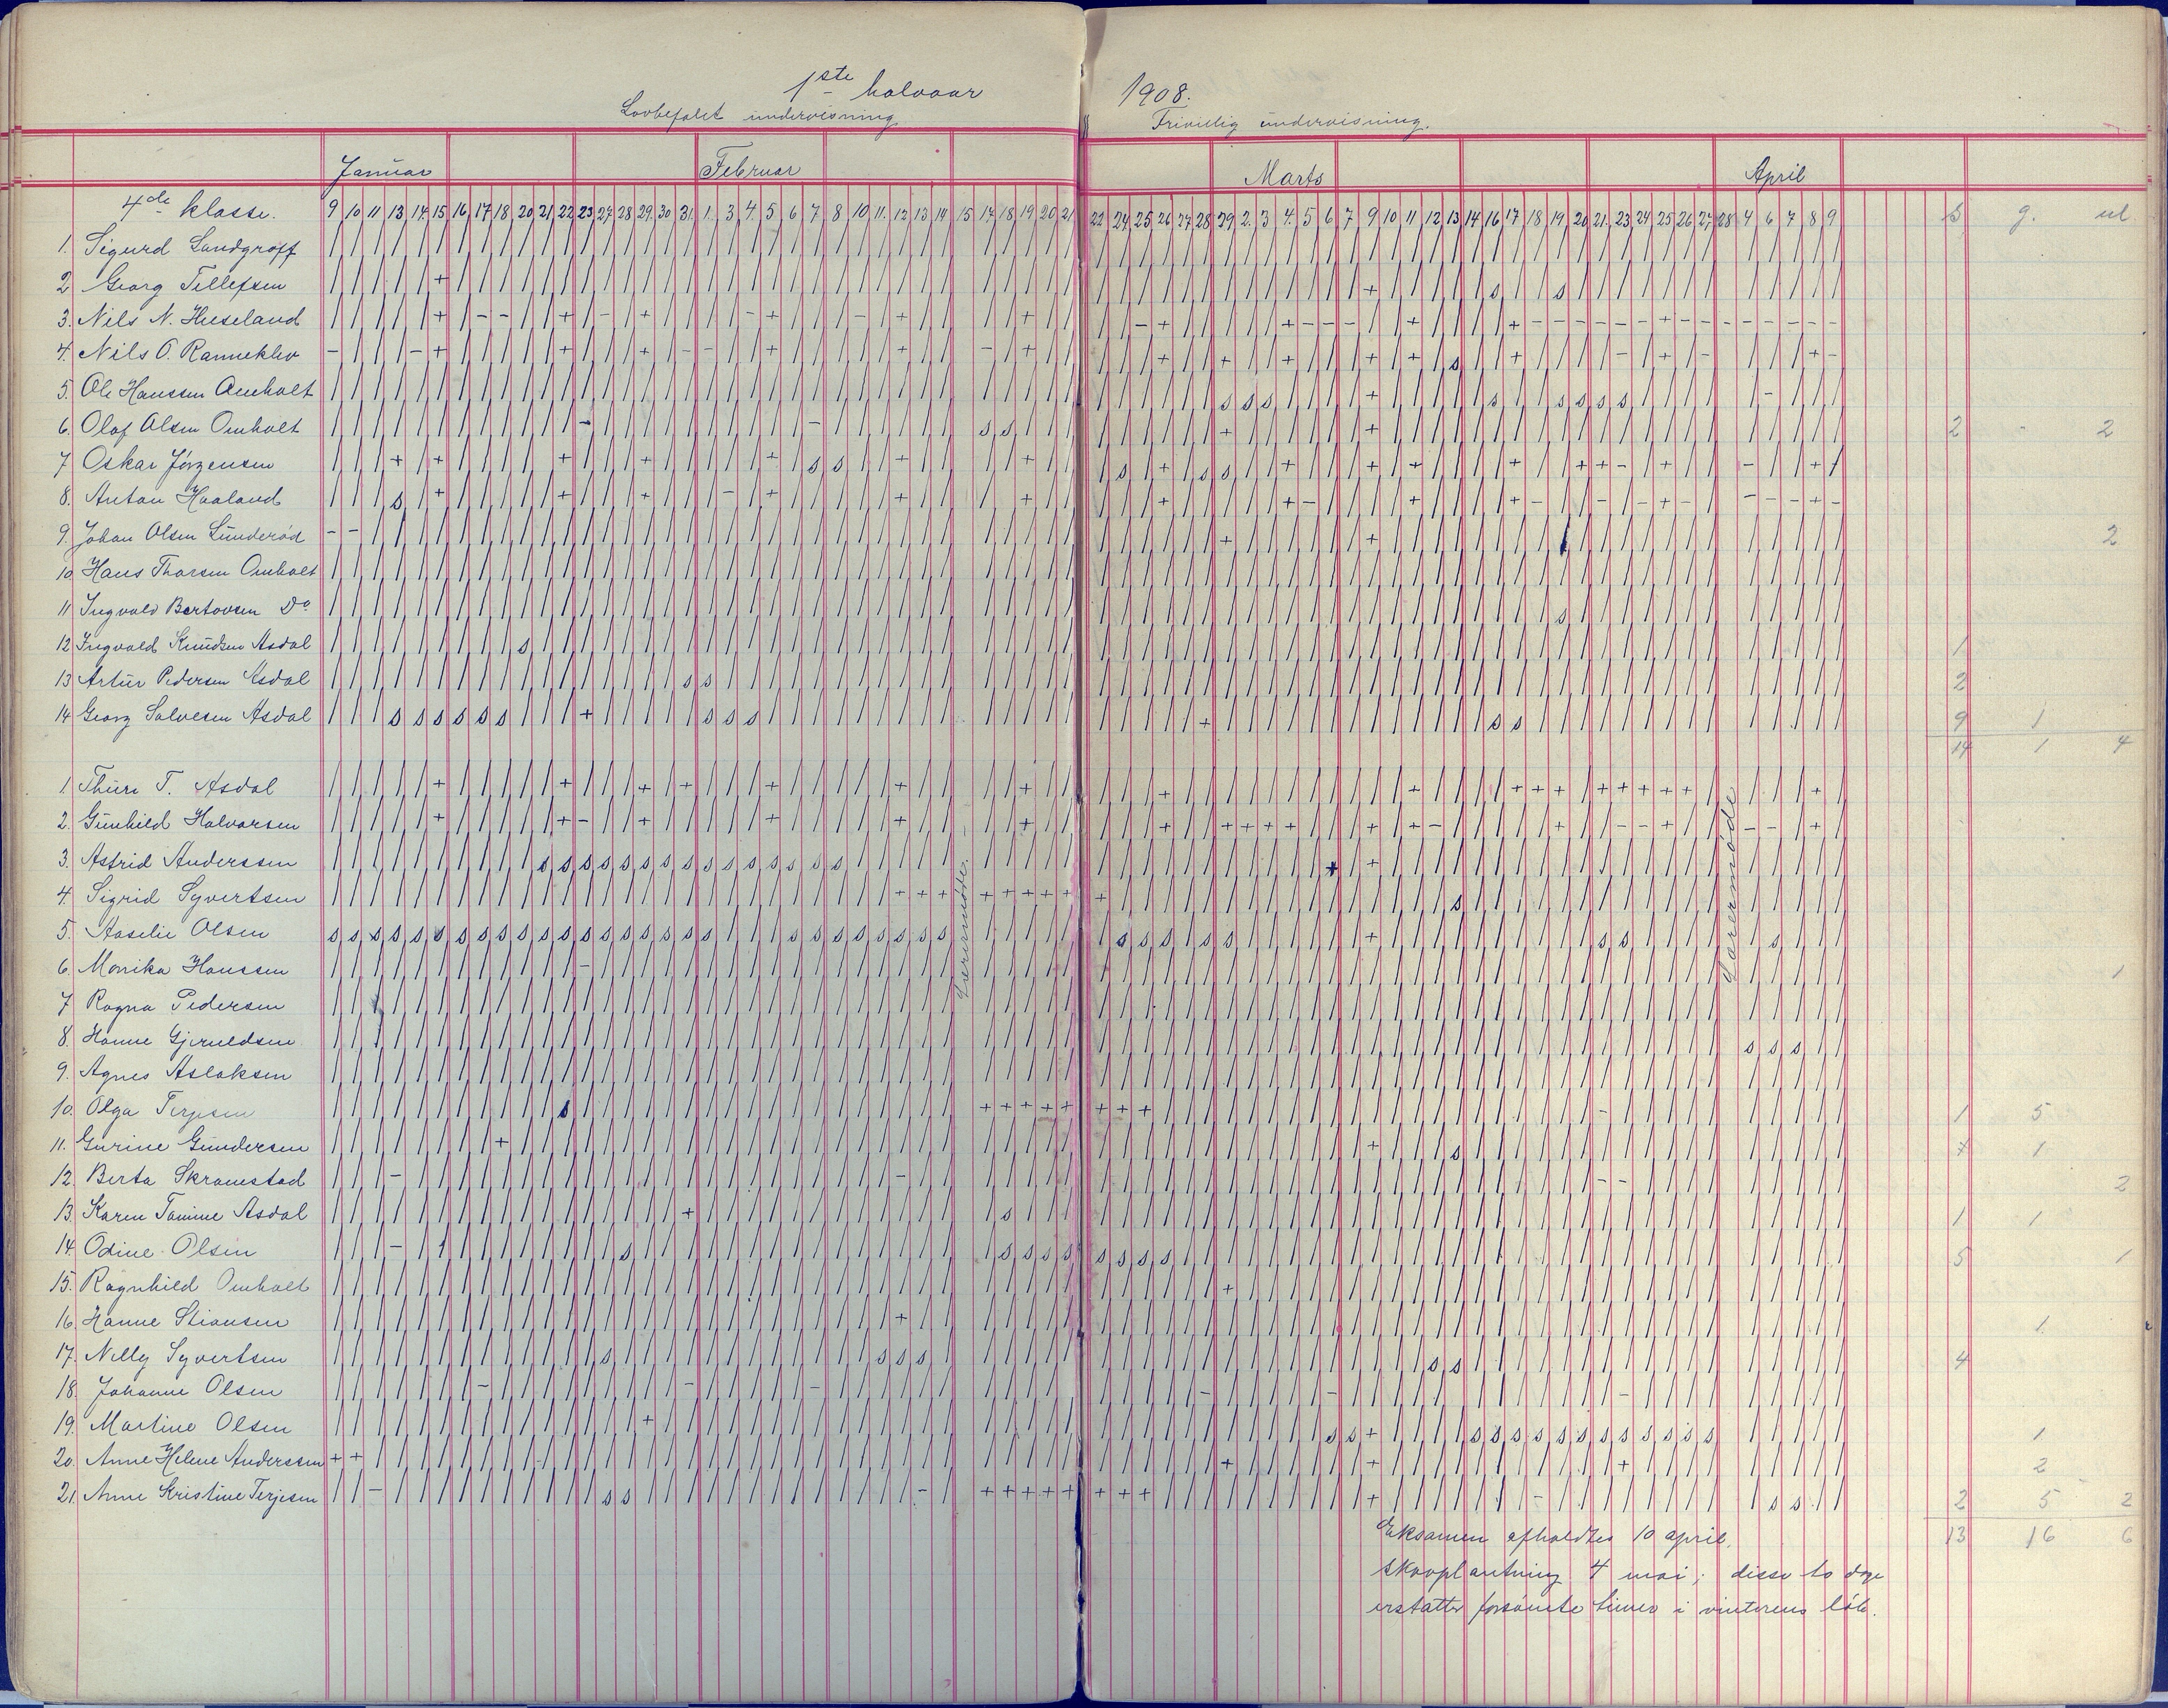 1ste halvaar 1908.
Lovbefalet undervisning Frivillig undervisning.
Januar Februar Marts April
4de klasse. 9 10 11 13 14 15 16 17 18 20 21 22 23 27 28 29 30 31 1 3 4 5 6 7 8 10 11 12 13 14 15 17 18 19 20 21 22 24 25 26 27 28 29 2 3 4 5 6 7 9 10 11 12 13 14 16 17 18 19 20 21 23 24 25 26 27 28 4 6 7 8 9 s g. ul
1. Sigurd Sandgroff
2 Georg Tellefsen
3. Nils N. Hueseland
4. Nils O. Ranneklev
5. Ole Hanssen Omholt
6. Olaf Olsen Omholt 2 - 2
7 Oskar Jörgensen
8. Anton Haaland
9. Johan Olsen Sünderöd 2
10 Hans Thorsen Omholt
11 Ingvald Bertovsen Do
12 Ingvald Knudsen Asdal 1
13 Artur Pedersen Asdal 2
14 Georg Salvesen Asdal 9 1
14 1 4
1 Thure T. Asdal
2. Günhild Halvorsen
3. Astrid Anderssen
4. Sigrid Syvertsen
5. Aaselie Olsen
6. Monika Hanssen 1
7 Ragna Pedersen
8. Hanne Gjeruldsen
9. Agnes Aslaksen
10. Olga Terjesen 1 5
11. Gurine Gundersen 7 1
12. Berta Skramstad 2
13. Karen Tomine Asdal 1 1
14. Odine Olsen 5 1
15. Ragnhild Omholt
16. Hanne Stiansen 1
17. Nelly Syvertsen 4
18. Johanne Olsen
19. Martine Olsen 1
20. Anne Helene Anderssen 2
21. Anne Kristine Terjesen 2 5 2
13 16 6
Lærermöde.
Lærermöde
Eksamen afholdtes 10 april.
Skovplantning 4 mai; disse to dage
erstatter forsömte timer i vinterens löb.